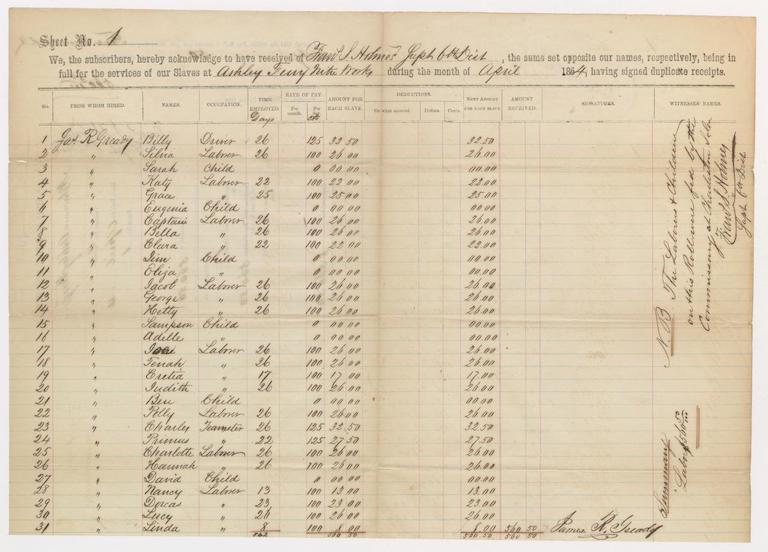 Sheet No. 1
We, the subscribers, hereby acknowledge to have received of Fran. S. Holmes Supt 6th Dist, the sums set opposite our names, respectively, being in
full for the services of our Slaves at Ashley Ferry Nitre Works during the month of April 1864, having signed duplicate receipts.
No. FROM WHOM HIRED. NAMES. OCCUPATION. TIME EMPLOYED. RATE OF PAY. AMOUNT FOR EACH SLAVE. DEDUCTIONS. NETT AMOUNT FOR EACH SLAVE. AMOUNT RECEIVED. SIGNATURES. WITNESSES NAMES.
Days Per month. Per On what account. Dollars. Cents.
1 Jas R Gready Billy Driver 26 125 32.50 32.50
2 " Silvia Laborer 26 100 26.00 26.00
3 " Sarah Child 0 00.00 00.00
4 " Katy Laborer 22 100 22.00 22.00
5 " Grace " 25 100 25.00 25.00
6 " Eugenia Child 0 00.00 00.00
7 " Captain Laborer 26 100 26.00 26.00
8 " Bella " 26 100 26.00 26.00
9 " Clara " 22 100 22.00 22.00
10 " Jim Child 0 00.00 00.00
11 " Elija " 0 00.00 00.00
12 " Jacob Laborer 26 100 26.00 26.00
13 " George " 26 100 26.00 26.00
14 " Hetty " 26 100 26.00 26.00
15 " Sampson Child 0 00.00 00.00
16 " Adelle " 0 00.00 00.00
17 " Laborer 26 100 26.00 26.00
18 " Tenah " 26 100 26.00 26.00
19 " Cretia " 17 100 17.00 17.00
20 " Judith " 26 100 26.00 26.00
21 " Ben Child 0 00.00 00.00
22 " Polly Laborer 26 100 26.00 26.00
23 " Charley Teamster 26 125 32.50 32.50
24 " Primus " 22 125 27.50 27.50
25 " Charlotte Laborer 26 100 26.00 26.00
26 " Hannah " 26 100 26.00 26.00
27 " David Child 0 00.00 00.00
28 " Nancy Laborer 13 100 13.00 13.00
29 " Dorcas " 23 100 23.00 23.00
30 " Lucy " 26 100 26.00 26.00
31 " Linda " 8 100 8.00 8.00 560.50 James R. Gready
560.50 560.50 560.50
N B The Laborers & Children
on this Roll were fed by the
Commissary at Charleston
Fran. S. Holmes
Supt 6th Dist
Summary
Labor